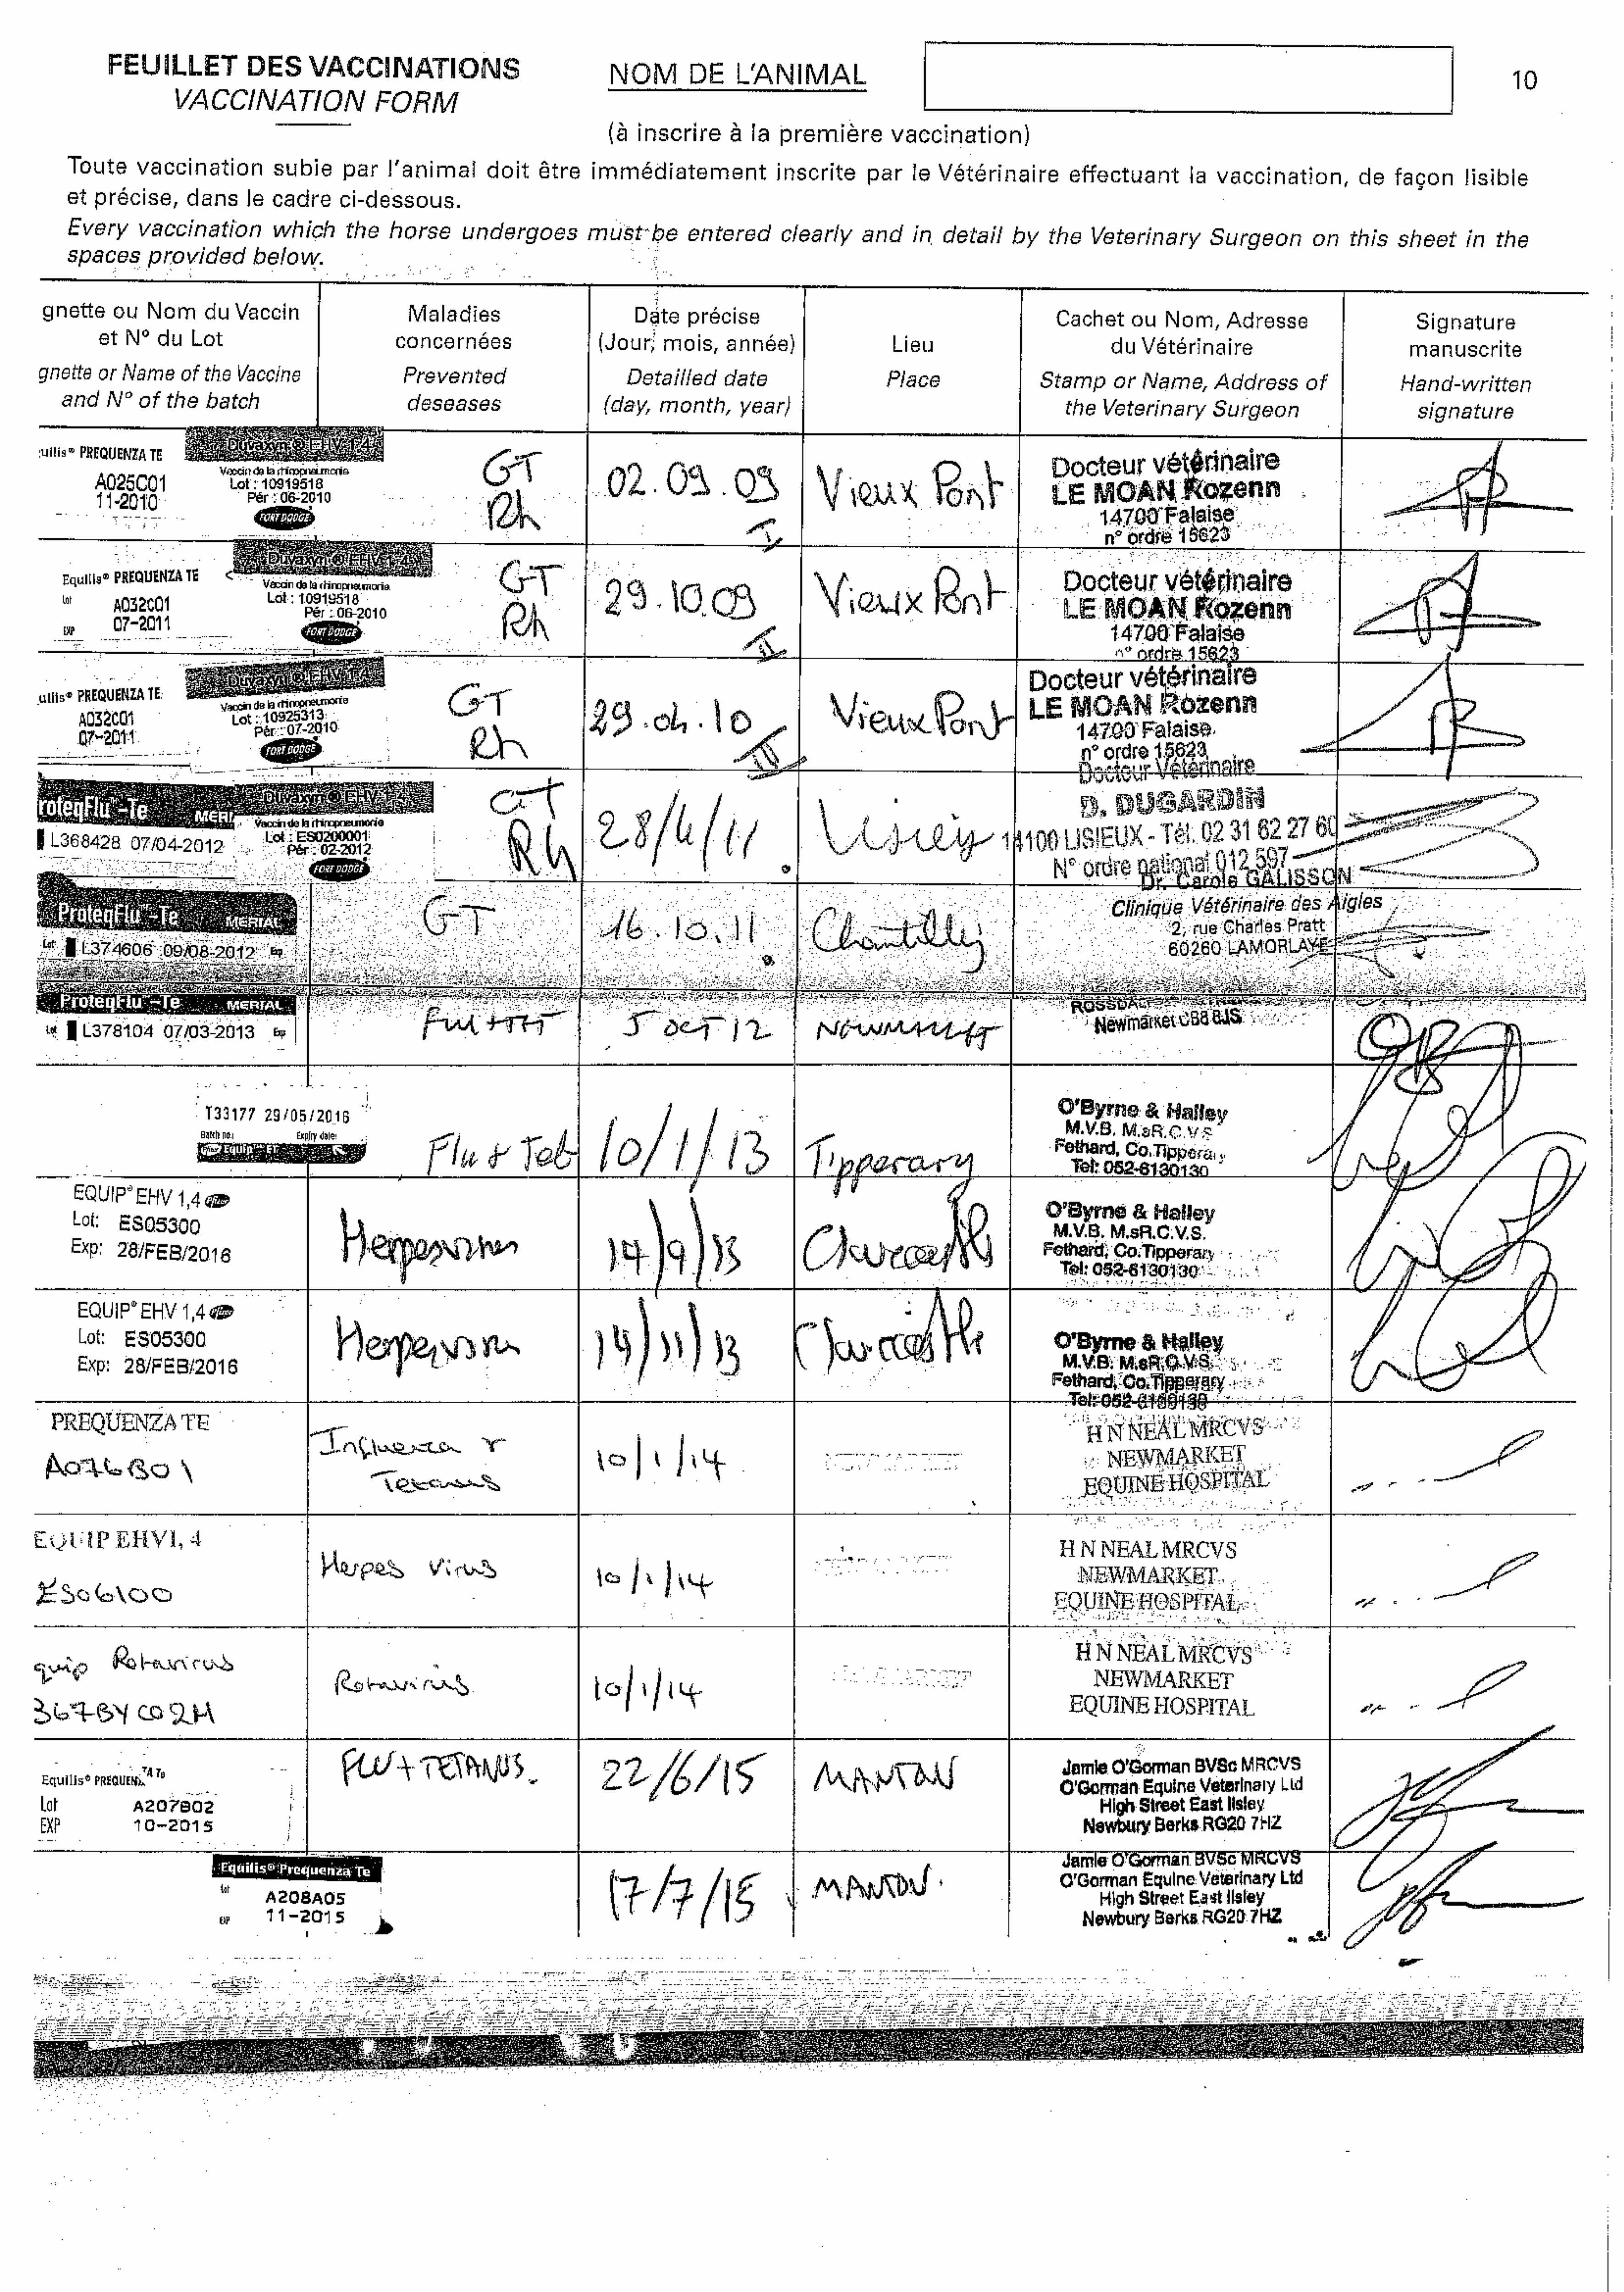 FEUILLET DES VACCINATIONS
VACCINATION FORM
NOM DE L'ANIMAL
10
(à inscrire à la première vaccination)
Toute vaccination subie par l'animal doit être immédiatement inscrite par le Vétérinaire effectuant la vaccination, de façon lisible
et précise, dans le cadre ci-dessous.
Every vaccination which the horse undergoes must be entered clearly and in detail by the Veterinary Surgeon on this sheet in the
spaces provided below.
gnette ou Nom du Vaccin
et N° du Lot
gnette or Name of the Vaccine
and N° of the batch
Maladies
concernées
Prevented
deseases
Date précise
(Jour, mois, année)
Detailled date
(day, month, year)
Lieu
Place
Cachet ou Nom, Adresse
du Vétérinaire
Stamp or Name, Address of
the Veterinary Surgeon
Signature
manuscrite
Hand-written
signature
uilis® PREQUENZA TE
A025C01
11-2010
Duvaxyn ® EHV 1 4
Vaccin de la rhinopneumonie
Lot : 10919518
Pér : 06-2010
FORT DODGE
GT
Rh
02.09.09
I
Vieux Pont
Docteur vétérinaire
LE MOAN Rozenn
14700 Falaise
n° ordre 15623
Equilis® PREQUENZA TE
Lot A032C01
EXP 07-2011
Duvaxyn ® EHV 1 4
Vaccin de la rhinopneumonie
Lot : 10919518
Pér : 06-2010
FORT DODGE
GT
Rh
29.10.09
II
Vieux Pont
Docteur vétérinaire
LE MOAN Rozenn
14700 Falaise
n° ordre 15623
uilis® PREQUENZA TE
A032C01
07-2011
Duvaxyn ® EHV 1 4
Vaccin de la rhinopneumonie
Lot : 10925313
Pér : 07-2010
FORT DODGE
GT
Rh
29.04.10
III
Vieux Pont
Docteur vétérinaire
LE MOAN Rozenn
14700 Falaise
n° ordre 15623
roteqFlu -Te MERI
L368428 07/04-2012
Duvaxyn ® EHV 1 4
Vaccin de la rhinopneumonie
Lot : ES0200001
Pér : 02-2012
FORT DODGE
GT
Rh
28/4/11
Docteur Vétérinaire
D. DUGARDIN
14100 LISIEUX - Tél. 02 31 62 27 60
N° ordre national 012 597
ProteqFlu -Te MERIAL
Lot L374606 09/08-2012 Exp
GT
16.10.11
Chantilly
Dr. Carole GALISSON
Clinique Vétérinaire des Aigles
2, rue Charles Pratt
60260 LAMORLAYE
ProteqFlu -Te MERIAL
Lot L378104 07/03-2013 Exp
Flu + Tet
5 OCT 12
NEWMARKET
Newmarket CB8 8JS
T33177 29/05/2016
Batch no.: Expiry date:
Flu & Tet
10/1/13
Tipperary
O'Byrne & Halley
M.V.B. M.sR.C.V.S
Fethard, Co.Tipperary
Tel: 052-6130130
EQUIP® EHV 1,4 Pfizer
Lot: ES05300
Exp: 28/FEB/2016
Herpesvirus
14/9/13
Clarecastle
O'Byrne & Halley
M.V.B. M.sR.C.V.S.
Fethard, Co.Tipperary
Tel: 052-6130130
EQUIP® EHV 1,4 Pfizer
Lot: ES05300
Exp: 28/FEB/2016
Herpesvirus
14/11/13
Clarecastle
O'Byrne & Halley
M.V.B. M.sR.C.V.S.
Fethard, Co.Tipperary
Tel: 052-6130130
PREQUENZA TE
A076B01
Influenza &
Tetanus
10/1/14
NEWMARKET
H N NEAL MRCVS
NEWMARKET
EQUINE HOSPITAL
EQUIP EHV1, 4
ES06100
Herpes Virus
10/1/14
NEWMARKET
H N NEAL MRCVS
NEWMARKET
EQUINE HOSPITAL
quip Rotavirus
367BYC02M
Rotavirus
10/1/14
NEWMARKET
H N NEAL MRCVS
NEWMARKET
EQUINE HOSPITAL
Equilis® PREQUENZA TE
Lot A207B02
EXP 10-2015
FLU + TETANUS.
22/6/15
MANTON
Jamie O'Gorman BVSc MRCVS
O'Gorman Equine Veterinary Ltd
High Street East Ilsley
Newbury Berks RG20 7HZ
Equilis® Prequenza Te
Lot A208A05
EXP 11-2015
17/7/15
MANTON.
Jamie O'Gorman BVSc MRCVS
O'Gorman Equine Veterinary Ltd
High Street East Ilsley
Newbury Berks RG20 7HZ